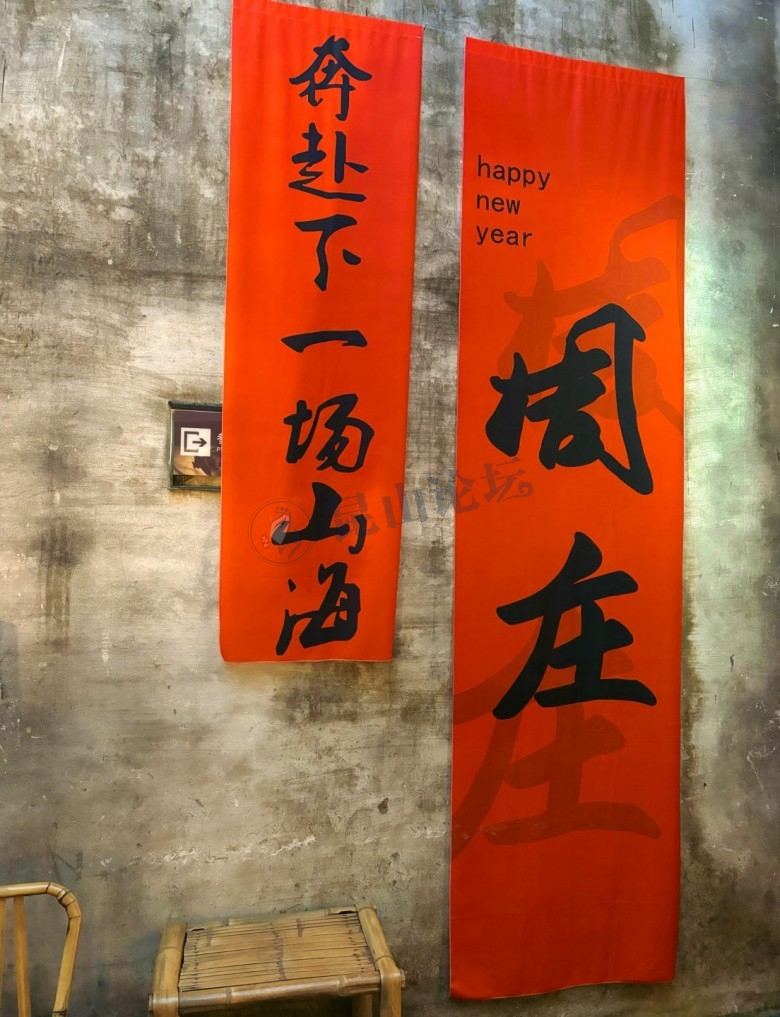 奔赴下一场山海
happy
new
year
周庄
周庄
昆山论坛